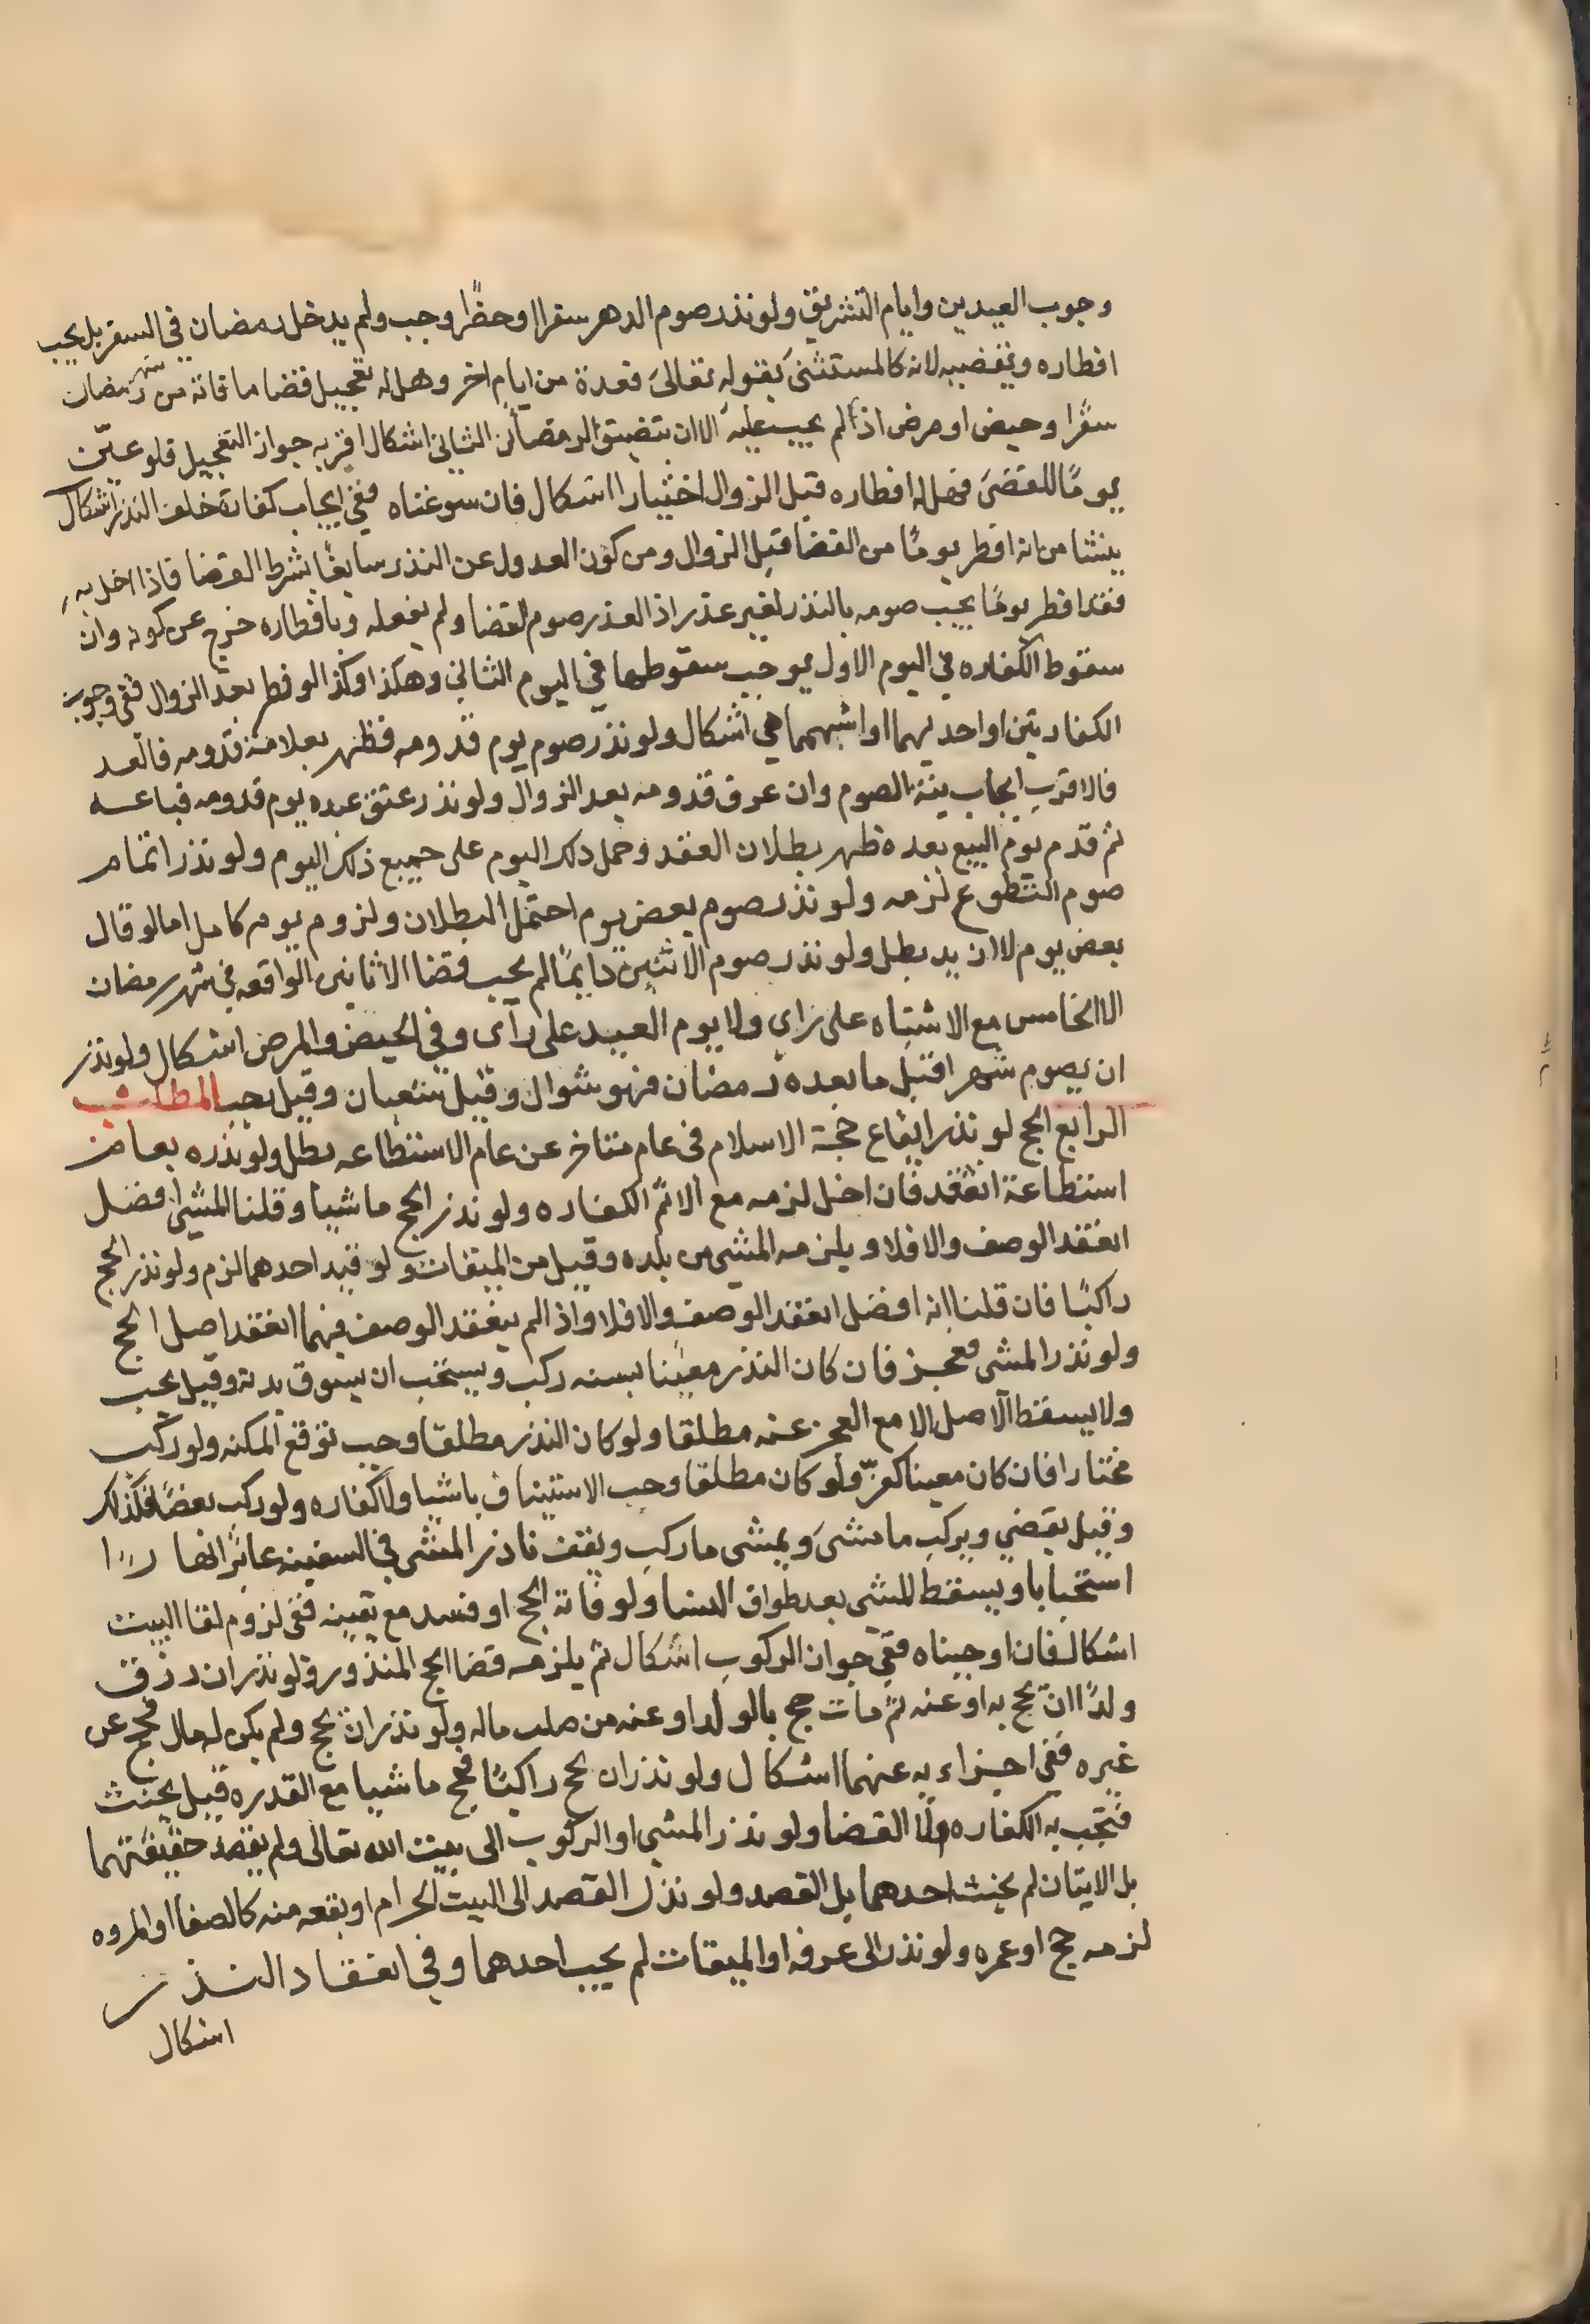 وجوب العيدين وايام التشريق ولو نذر صوم الدهر سفرا وحضرا وجب ولم يدخل رمضان في السفر بل يجب
افطاره ويقضيه لانه كالمستثنى بقوله تعالى فعدة من ايام اخر وهل له تعجيل قضا ما فاته من شهر رمضان
سفرا وحيض او مرض اذا لم يجب عليه الا ان يتضيق الرمضان الثاني اشكال اقربه جواز التعجيل فلو عين
يوما للقضى فهل له افطاره قبل الزوال اختيارا اشكال فان سوغناه ففي ايجاب كفارة خلف النذر اشكال
ينشا من انه افطر يوما من القضا قبل الزوال ومن كون العدول عن النذر سايغا بشرط القضا فاذا اخل به
فقد افطر يوما يجب صومه بالنذر لغير عذر اذ العذر صوم القضا ولم يفعله وبافطاره خرج عن كونه وان
سقوط الكفاره في اليوم الاول يوجب سقوطها في اليوم الثاني وهكذا وكذا لو فطر بعد الزوال ففي وجوب
الكفارتين او احديهما او اشبههما هي اشكال ولو نذر صوم يوم قدومه فظهر بعلامة قدومه في الغد
فالاقرب ايجاب نية الصوم وان عرف قدومه بعد الزوال ولو نذر عتق عبده يوم قدومه فباعه
ثم قدم يوم البيع بعده ظهر بطلان العقد وحمل ذلك اليوم على جميع ذلك اليوم ولو نذر اتمام
صوم التطوع لزمه ولو نذر صوم بعض يوم احتمل البطلان ولزوم يوم كامل اما لو قال
بعض يوم لا ازيد بطل ولو نذر صوم الاثنين دايما لم يجب قضا الاثانين الواقعه في شهر رمضان
الا الخامس مع الاشتباه على راي ولا يوم العيد على رآى وفي الحيض والمرض اشكال ولو نذر
ان يصوم شهرا قبل ما بعده رمضان فهو شوال وقيل شعبان وقيل رجب المطلب
الرابع الحج لو نذر ايقاع حجة الاسلام في عام متاخر عن عام الاستطاعه بطل ولو نذره بعام
استطاعته انعقد فان اخل لزمه مع الاثم الكفاره ولو نذر الحج ماشيا وقلنا المشى افضل
انعقد الوصف والا فلا ويلزمه المشى من بلده وقيل من الميقات ولو قيد احدهما لزم ولو نذر الحج
راكبا فان قلنا انه افضل انعقد الوصف والا فلا واذا لم ينعقد الوصف فيهما انعقد اصل الحج
ولو نذر المشى فعجز فان كان النذر معينا بسنه ركب ويستحب ان يسوق بدنة وقيل يجب
ولا يسقط الاصل الا مع العجز عنه مطلقا ولو كان النذر مطلقا وجب توقع المكنه ولو ركب
مختارا فان كان معينا كفر ولو كان مطلقا وجب الاستيناف ماشيا ولا كفاره ولو ركب بعضا فكذلك
وقيل يقضي ويركب ما مشى ويمشى ما ركب ويقف ناذر المشى في السفينه عابرا انهارا
استحبابا ويسقط المشى بعد طواف النسا ولو فاته الحج او فسد مع تعينه ففي لزوم لقا البيت
اشكال فان اوجبناه ففي جواز الركوب اشكال ثم يلزمه قضا الحج المنذور ولو نذر ان رزق
ولدا ان يحج به او عنه ثم مات حج بالولد او عنه من صلب ماله ولو نذر ان يحج ولم يكن له مال فحج عن
غيره ففي اجزاءه عنهما اشكال ولو نذر ان يحج راكبا فحج ماشيا مع القدره قيل يحنث
فتجب به الكفاره ولا القضا ولو نذر المشي او الركوب الى بيت الله تعالى ولم يقصد حقيقتهما
بل الاتيان لم يجب احدهما بل القصد ولو نذر القصد الى البيت الحرام او بقعه منه كالصفا او المروه
لزمه حج او عمره ولو نذر الى عرفه او الميقات لم يجب احدهما وفي انعقاد النذر
اشكال